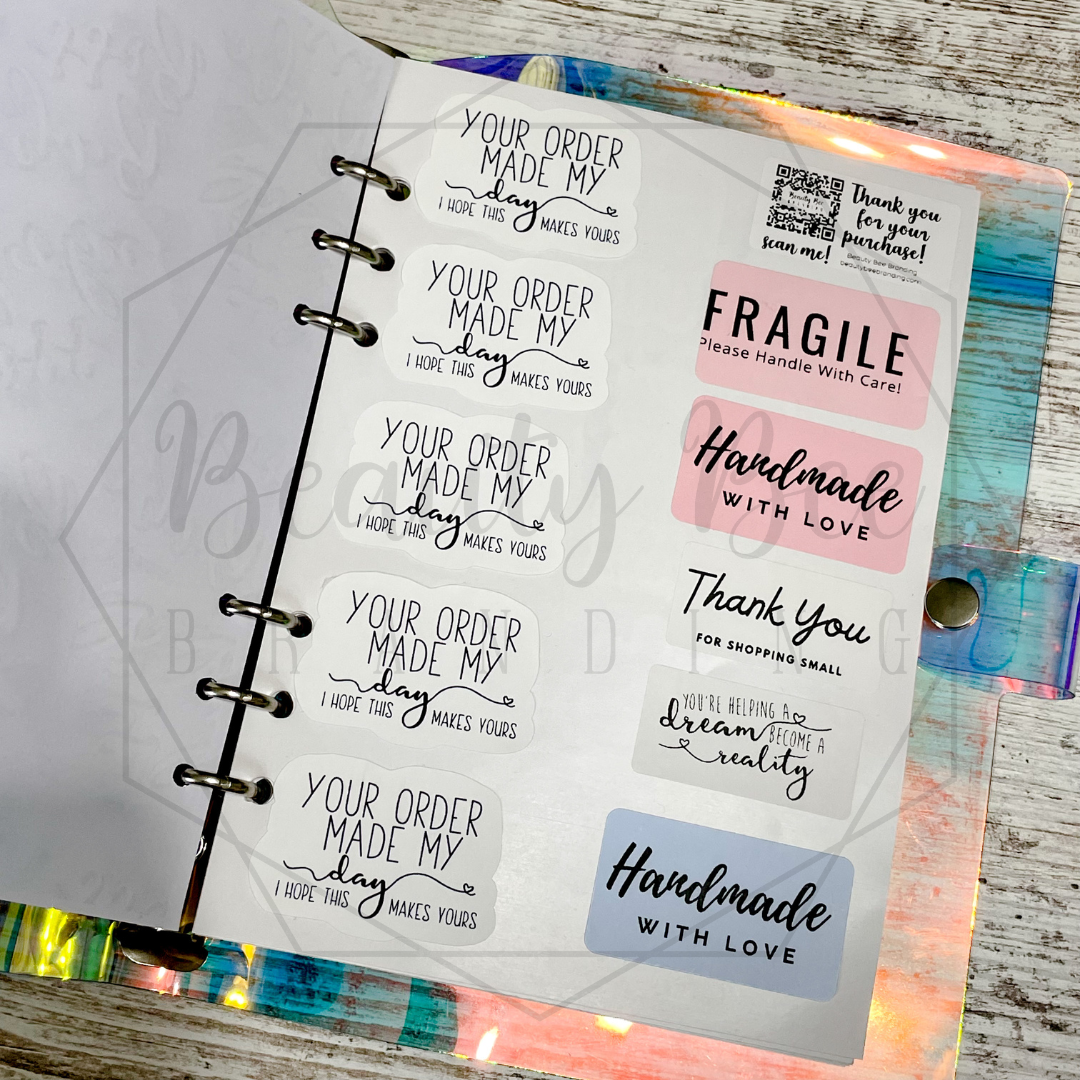 YOUR ORDER
MADE MY
day
I HOPE THIS MAKES YOURS
YOUR ORDER
MADE MY
day
I HOPE THIS MAKES YOURS
YOUR ORDER
MADE MY
day
I HOPE THIS MAKES YOURS
YOUR ORDER
MADE MY
day
I HOPE THIS MAKES YOURS
YOUR ORDER
MADE MY
day
I HOPE THIS MAKES YOURS
Beauty Bee
scan me!
Thank you
for your
purchase!
Beauty Bee Branding
beautybeebranding.com
FRAGILE
Please Handle With Care!
Handmade
WITH LOVE
Thank You
FOR SHOPPING SMALL
YOU'RE HELPING A
dream BECOME A
reality
Handmade
WITH LOVE
Beauty Bee
BRANDING